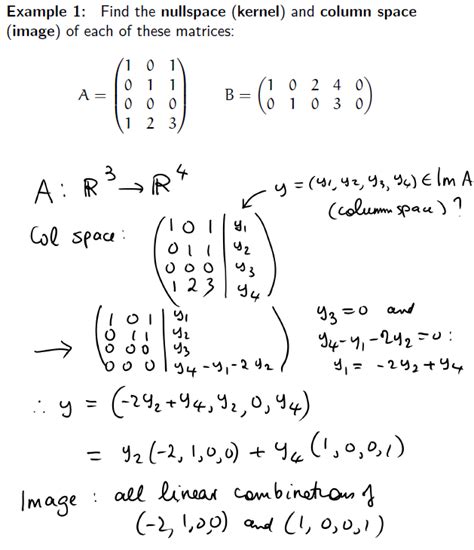 Example 1: Find the nullspace (kernel) and column space
(image) of each of these matrices:
A = (1 0 1
0 1 1
0 0 0
1 2 3) B = (1 0 2 4 0
0 1 0 3 0)
A : ℝ³ → ℝ⁴
y = (y₁, y₂, y₃, y₄) ∈ Im A
(column space) ?
Col space :
(1 0 1 | y₁
0 1 1 | y₂
0 0 0 | y₃
1 2 3 | y₄)
→ (1 0 1 | y₁
0 1 1 | y₂
0 0 0 | y₃
0 0 0 | y₄ - y₁ - 2y₂)
y₃ = 0 and
y₄ - y₁ - 2y₂ = 0 :
y₁ = -2y₂ + y₄
∴ y = (-2y₂ + y₄, y₂, 0, y₄)
= y₂ (-2, 1, 0, 0) + y₄ (1, 0, 0, 1)
Image : all linear combinations of
(-2, 1, 0, 0) and (1, 0, 0, 1)